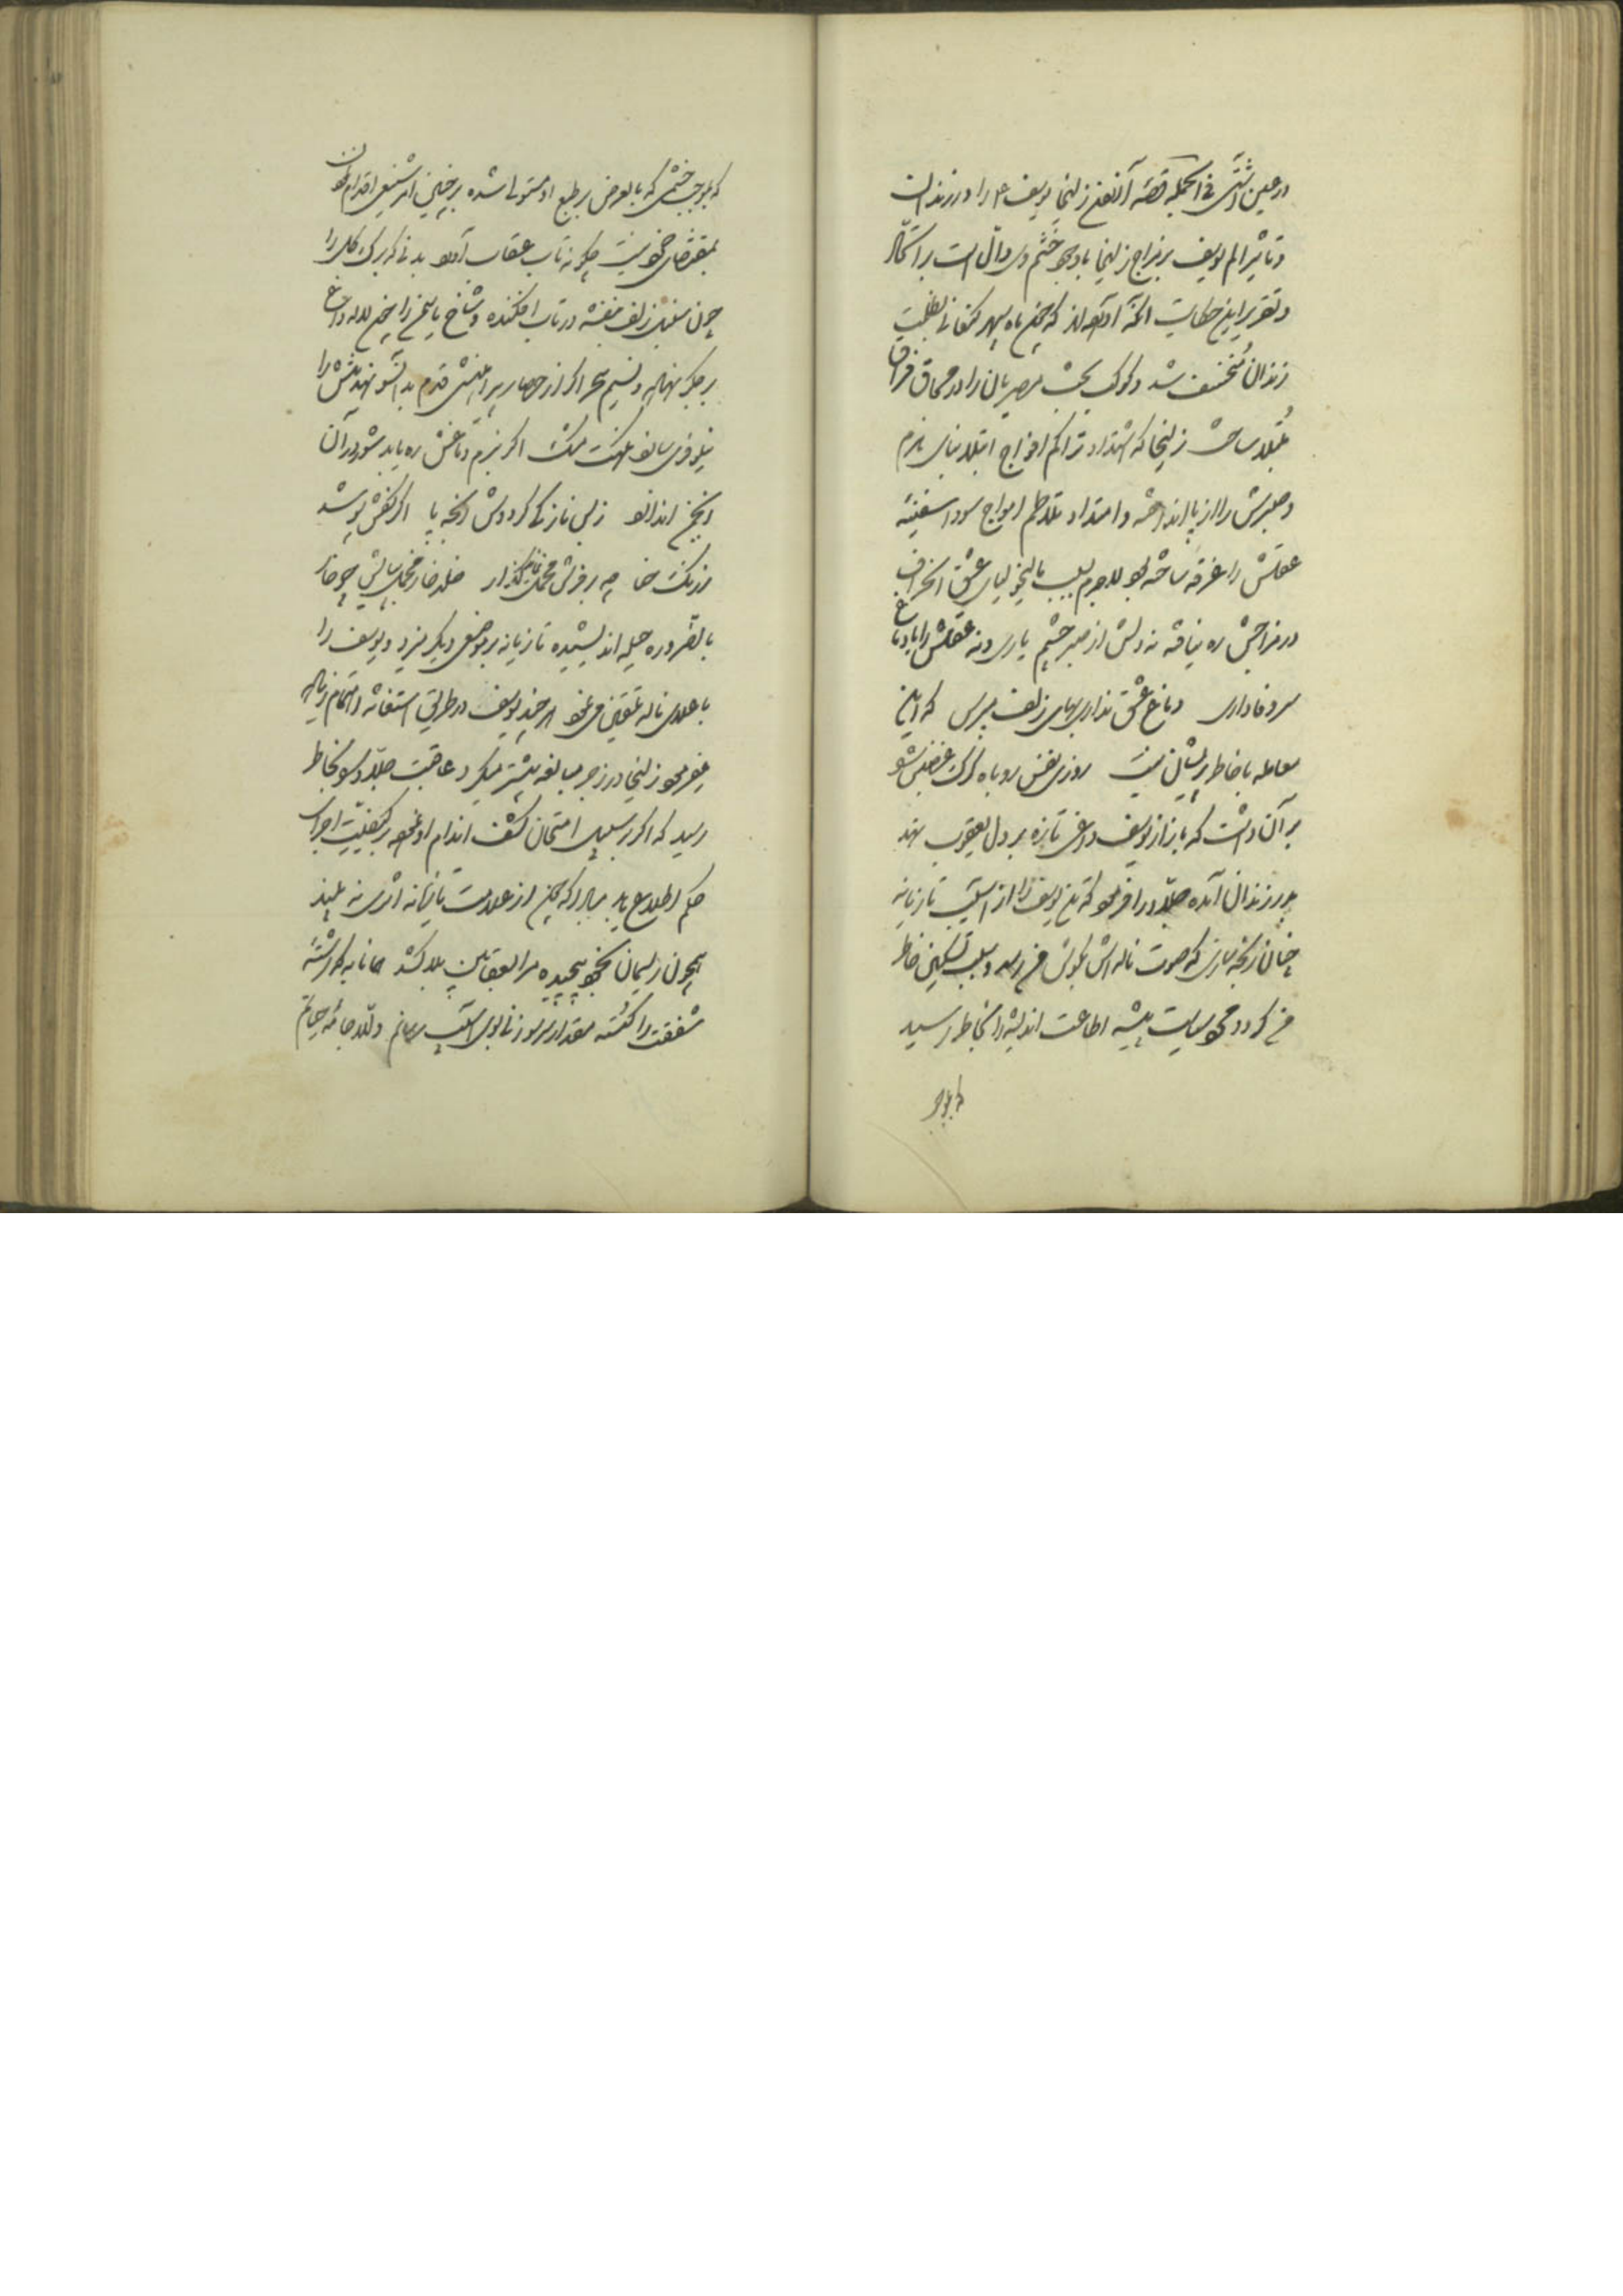 در عین دشمنی فی الجمله قصه زلیخا یوسف را در زندان
و تاثیر الم یوسف بر مزاج زلیخا با وجود خشم وی دال است بر
و تقریر این حکایت آنکه آورده‌اند که چون ماه سپهر کنعانی بظلمت
زندان منخسف شد و کوکب بخت مصریان را در محاق فراق
مبتلا ساخت زلیخا که اشتداد تراکم افواج ابتلا بنای بزم
و صبرش را از پا انداخته و امتداد تلاطم امواج سودا سفینه
عقلش را غرقه ساخته بود لاجرم بسبب مالیخولیای عشق انحراف
در مزاجش ره یافته نه دلش از صبر چشم یاری و نه عقلش را با دماغ
سر وفاداری دماغ عشق نداری بهای زلف مپرس که این
معامله با خاطر پریشان نیست روزی نفس روباه گرگ غضبش
بر آن داشت که باز از یوسف داغی تازه بر دل یعقوب نهد
بدر زندان آمده جلاد را فرمود که تن یوسف را از آسیب تازیانه
چنان رنجه سازی که صوت ناله‌اش بگوش من رسد و سبب تسکین خاطر
من گردد محبوسیاست پیشه اطاعت اندیشه را بخاطر رسید
که بموجب
که بموجب خشمی که بالعرض بر طبع او مستولی شده بر چنین امر شنیعی اقدام نمودن
بمقتضای خود نیست چگونه تاب عقاب آورد بدنی که برگ گل را
چون سنبل زلف بنفشه در تاب افکنده و شاخ یاسمن را چون لاله داغ
بر جگر نهاده و نسیم سحر اگر از حصار پیراهنش قدم بدانسو نهد تنش را
نیلوفری سازد نکهت مشک اگر ببزم دماغش ره یابد شور در آن
انجمن اندازد ز بس نازکی گردد دلش رنجه پا اگر کفش پوشد
ز رنگ حنا چه بر فرش مخمل نماید گذار خلد خار مخمل بپایش چو خار
بالضروره حیله اندیشیده تازیانه بر موضعی دیگر میزد و یوسف را
باعلای ناله تلقین می‌نمود هر چند یوسف در طریق استغاثه و اهتمام زیاده
میفرمود زلیخا در زجر مبالغه بیشتر میکرد عاقبت جلاد را بخاطر
رسید که اگر بر سبیل امتحان کشف اندام او نموده بر کیفیت اجرای
حکم اطلاع یابد مبادا که چون از علامت تازیانه اثری نبیند
همچون ریسمان بخود پیچیده مرا بعقابین بلا کشد همانا به که رشته
شفقت را گسسته مقدار سر سوزنی بوی آسیب رسانم والا جامه حیاتم